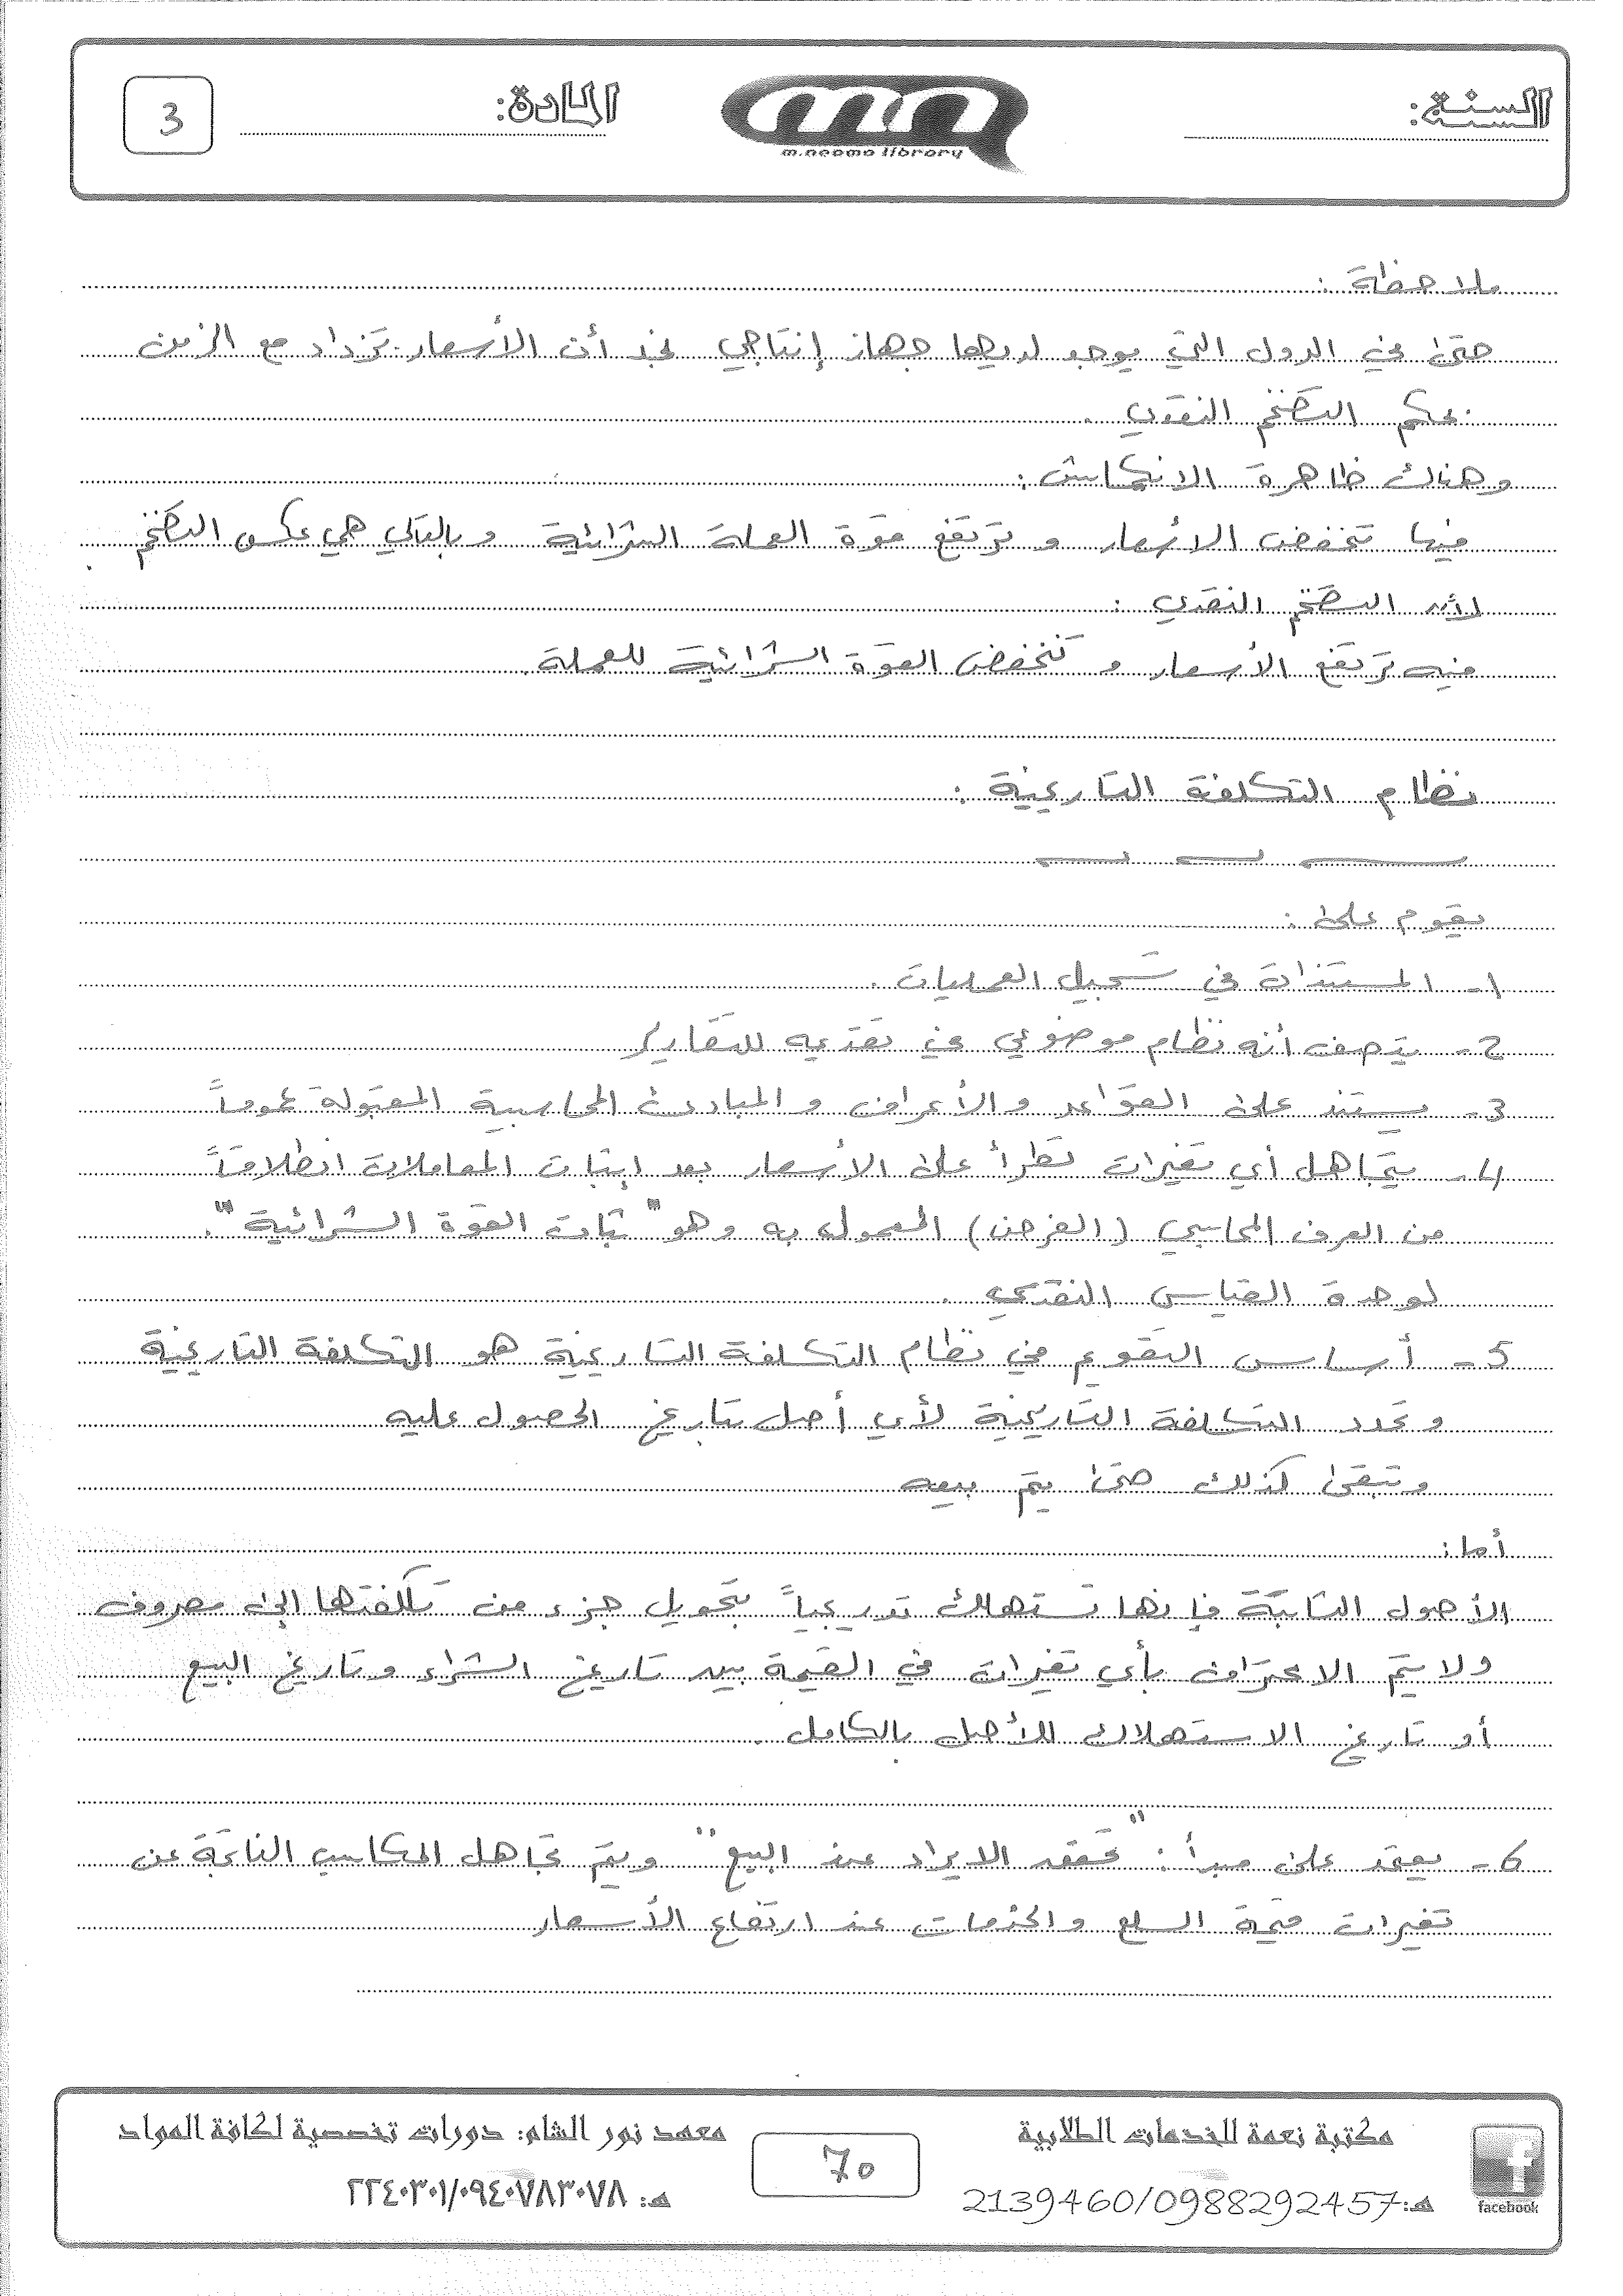 السنة:
المادة:
3
m.neoma library
ملاحظة :
حتى في الدول التي يوجد لديها جهاز إنتاجي نجد أن الأسعار تزداد مع الزمن
بحكم التضخم النقدي .
وهناك ظاهرة الانكماش :
فيها تنخفض الأسعار و ترتفع قوة العملة الشرائية وبالتالي هي عكس التضخم .
لأن التضخم النقدي :
فيه ترتفع الأسعار و تنخفض القوة الشرائية للعملة .
نظام التكلفة التاريخية :
يقوم على :
1- المستندات في تسجيل العمليات .
2- يتصف أنه نظام موضوعي في تقديمه للتقارير
3- يستند على القواعد والأعراف والمبادئ المحاسبية المقبولة عموماً
4- يتجاهل أي تغيرات تطرأ على الأسعار بعد إثبات المعاملات انطلاقاً
من العرف المحاسبي (الفرض) المعمول به وهو " ثبات القوة الشرائية " .
لوحدة القياس النقدي .
5- أساس التقويم في نظام التكلفة التاريخية هو التكلفة التاريخية
وتحدد التكلفة التاريخية لأي أصل بتاريخ الحصول عليه
وتبقى كذلك حتى يتم بيعه
أما :
الأصول الثابتة فإنها تستهلك تدريجياً بتحويل جزء من تكلفتها إلى مصروف
ولا يتم الاعتراف بأي تغيرات في القيمة بين تاريخ الشراء وتاريخ البيع
أو تاريخ الاستهلاك للأصل بالكامل .
6- يعتمد على مبدأ : " تحقق الايراد عند البيع " ويتم تجاهل المكاسب الناتجة عن
تغيرات قيمة السلع والخدمات عند ارتفاع الأسعار
مكتبة نعمة للخدمات الطلابية
هـ: 2139460/0988292457
facebook
70
معهد نور الشام: دورات تخصصية لكافة المواد
هـ: ٢٢٤٠٣٠١/٠٩٤٠٧٨٣٠٧٨